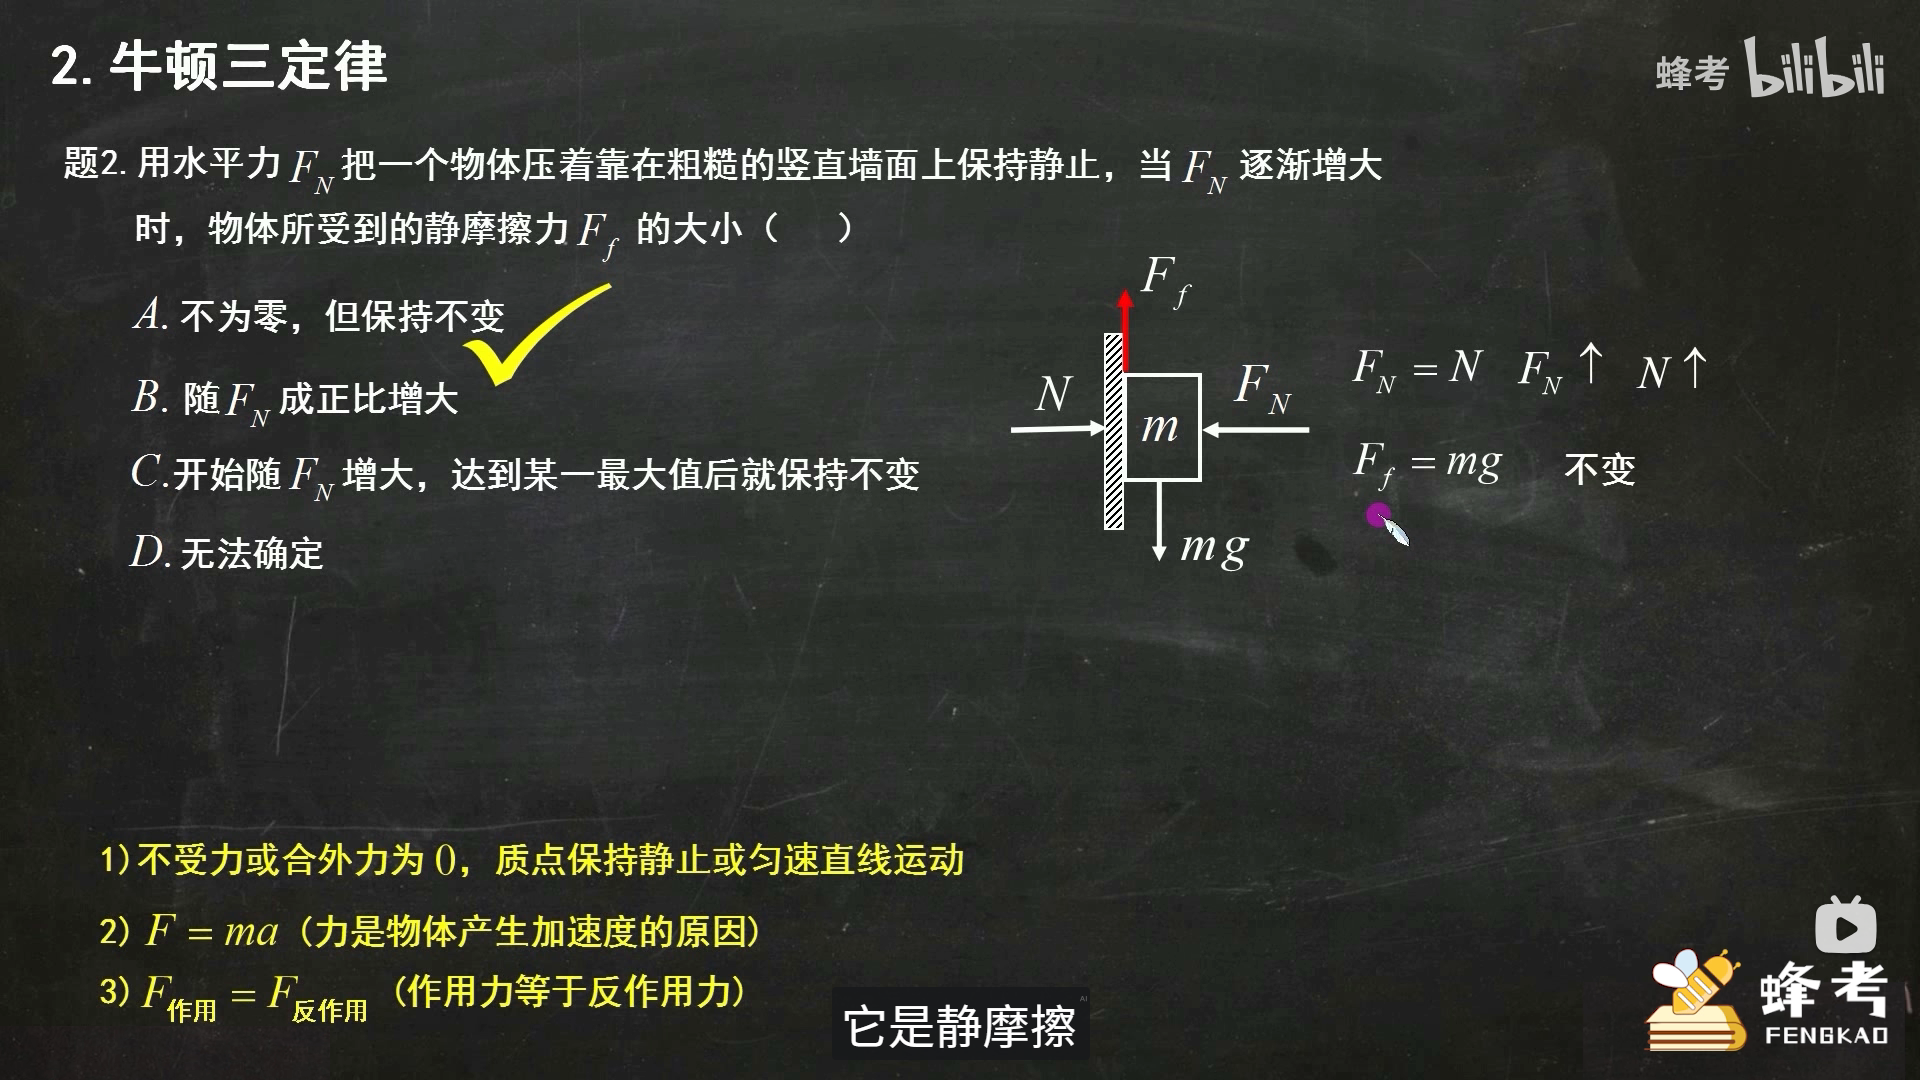 2.牛顿三定律
蜂考 bilibili
题2.用水平力 F_N 把一个物体压着靠在粗糙的竖直墙面上保持静止，当 F_N 逐渐增大
时，物体所受到的静摩擦力 F_f 的大小（ ）
A.不为零，但保持不变
B.随 F_N 成正比增大
C.开始随 F_N 增大，达到某一最大值后就保持不变
D.无法确定
F_f
N
m
F_N
mg
F_N = N F_N↑ N↑
F_f = mg 不变
1)不受力或合外力为 0，质点保持静止或匀速直线运动
2) F = ma (力是物体产生加速度的原因)
3) F作用 = F反作用 (作用力等于反作用力)
它是静摩擦
AI
蜂考
FENGKAO